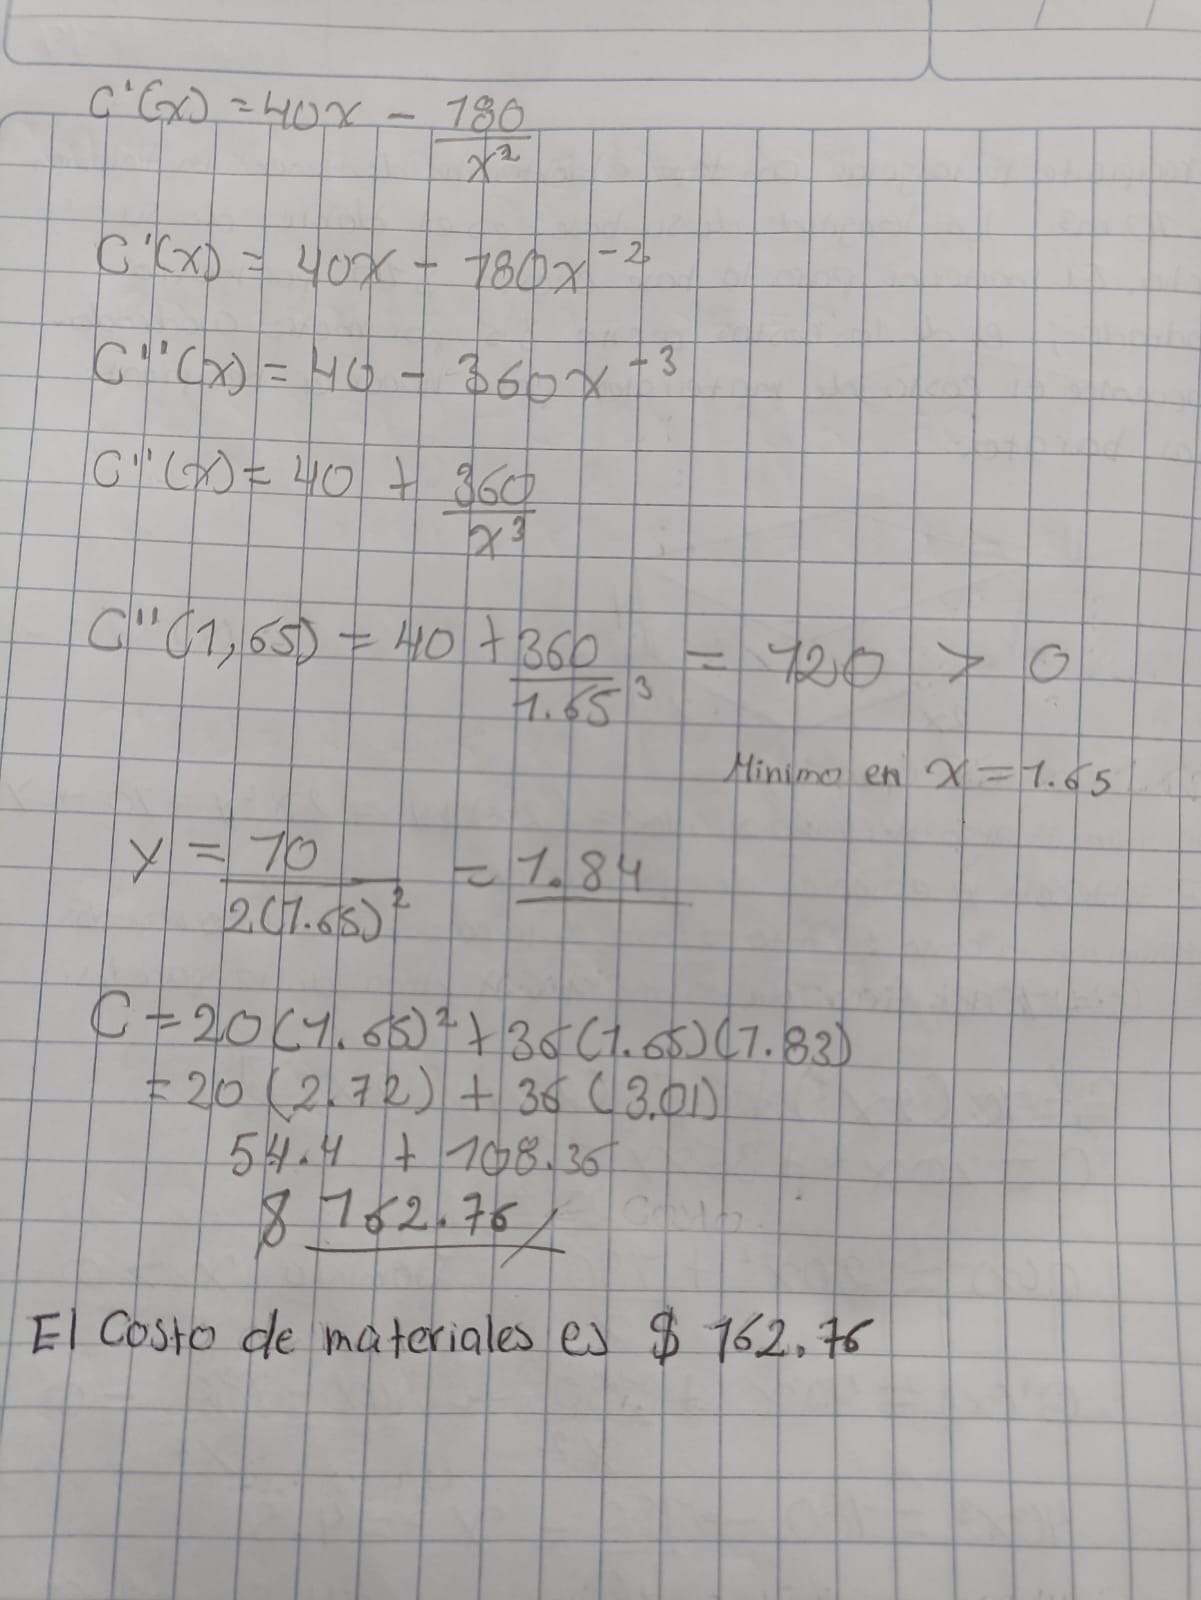 C'(x) = 40x - 180/x²
C'(x) = 40x - 180x⁻²
C''(x) = 40 - 360x⁻³
C''(x) = 40 + 360/x³
C''(1,65) = 40 + 360/1.65³ = 120 > 0
Minimo en x = 1.65
y = 10/2(1.65)² = 1.84
C = 20(1.65)² + 36(1.65)(1.83)
= 20(2.72) + 36(3.01)
54.4 + 108.36
$ 162.76
El Costo de materiales es $ 162.76